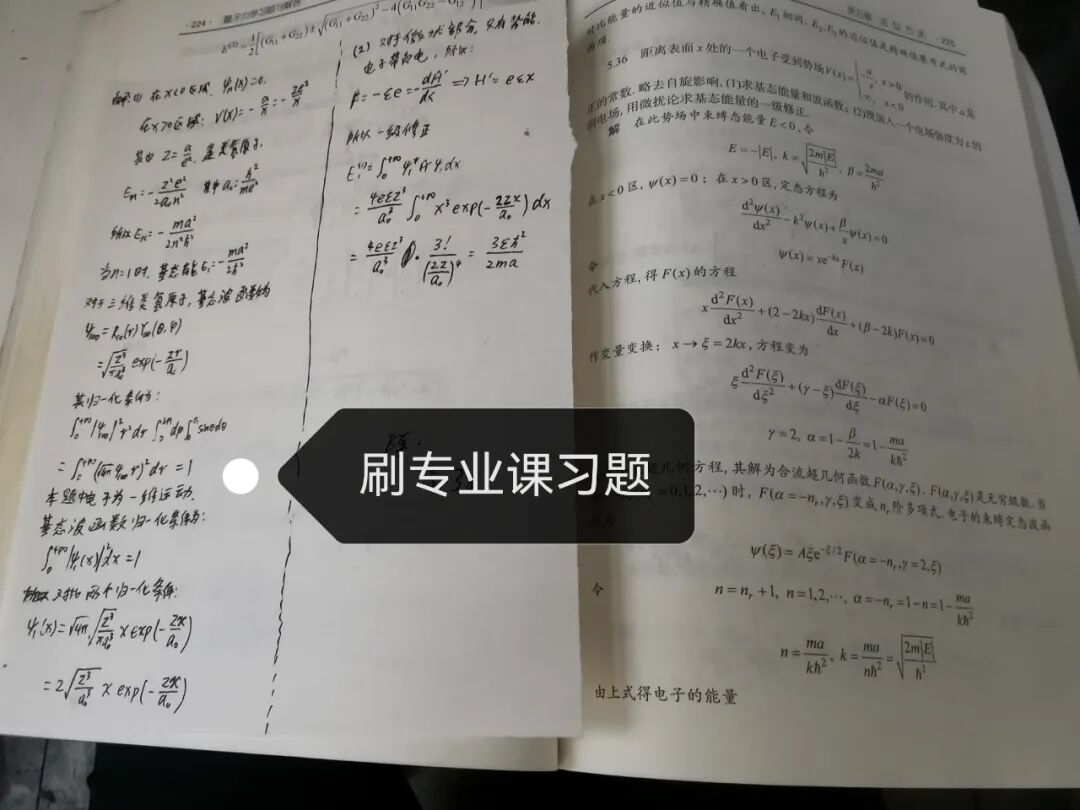 · 224 · 量子力学习题与解答
解(1) 在x<0区域, ψ₁(x)=0.
在x>0区域: V(x)=-a/x=-ze²/x
其中 Z=a/e², 类氢原子.
Eₙ=-z²e²/2a₀n² 其中 a₀=ħ²/me²
所以 Eₙ=-ma²/2n²ħ²
当n=1时, 基态能E₁=-ma²/2ħ²
对于三维类氢原子, 基态波函数为
ψ₁₀₀=R₁₀(r)Y₀₀(θ,φ)
=√(z³/πa₀³) exp(-zr/a₀)
其归一化条件为:
本题中电子为一维运动.
基态波函数归一化条件为:
∫₀^{+∞}|ψ₁(x)|²dx=1
所以 对比两个归一化条件:
=2√(z³/a₀³) x exp(-zx/a₀)
(2) 对于微扰部分, 只有势能.
电子带负电, 所以:
F=-εe=-dH'/dx ⟹ H'=eεx
所以一级修正
E₁⁽¹⁾=∫₀^{+∞} ψ₁*H'ψ₁dx
=4eεz³/a₀³ ∫₀^{+∞} x³exp(-2zx/a₀)dx
=4eεz³/a₀³ · 3!/(2z/a₀)⁴ = 3εħ²/2ma
刷专业课习题
225
对比能量的近似值与精确值看出, E₁相同, E₂,E₃的近似值是精确值展开式的前
两项.
5.36 距离表面x处的一个电子受到势场V(x)={-a/x, x>0; ∞, x<0 的作用. 其中a是
正的常数. 略去自旋影响, (1)求基态能量和波函数; (2)现加入一个电场强度为ε的
弱电场, 用微扰论求基态能量的一级修正.
解 在此势场中束缚态能量E<0, 令
E=-|E|, k=√(2m|E|/ħ²), β=2ma/ħ²
在x<0区, ψ(x)=0; 在x>0区, 定态方程为
d²ψ(x)/dx²-k²ψ(x)+β/xψ(x)=0
令
ψ(x)=xe^{-kx}F(x)
代入方程, 得F(x)的方程
x d²F(x)/dx²+(2-2kx)dF(x)/dx+(β-2k)F(x)=0
作变量变换: x→ξ=2kx, 方程变为
ξ d²F(ξ)/dξ²+(γ-ξ)dF(ξ)/dξ-αF(ξ)=0
γ=2, α=1-β/2k=1-ma/kħ²
几何方程, 其解为合流超几何函数F(α,γ,ξ). F(α,γ,ξ)是无穷级数. 当
=0,1,2,⋯)时, F(α=-nᵣ,γ,ξ)变成nᵣ阶多项式. 电子的束缚定态波函
ψ(ξ)=Aξe^{-ξ/2}F(α=-nᵣ,γ=2,ξ)
令
n=nᵣ+1, n=1,2,⋯, α=-nᵣ=1-n=1-ma/kħ²
n=ma/kħ², k=ma/nħ²=√(2m|E|/ħ²)
由上式得电子的能量